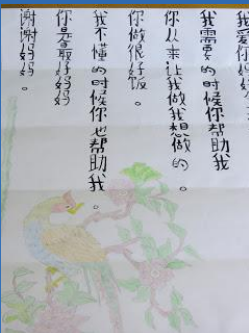 我爱你
我需要的时候你帮助我
你从来让我做我想做的。
你做很好饭。
我不懂的时候你也帮助我。
你是最好妈妈
谢谢妈妈。